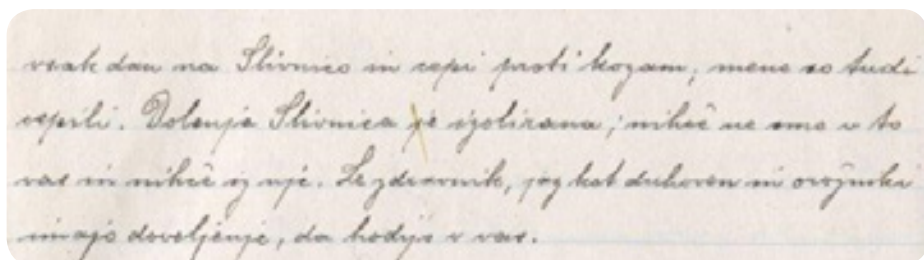 vsak dan na Slivnico in cepi proti kozam; mene so tudi
cepili. Dolenja Slivnica je izolirana; nihče ne sme v to
vas in nihče iz nje. Le zdravnik, jaz kot duhoven in orožniki
imajo dovoljenje, da hodijo v vas.